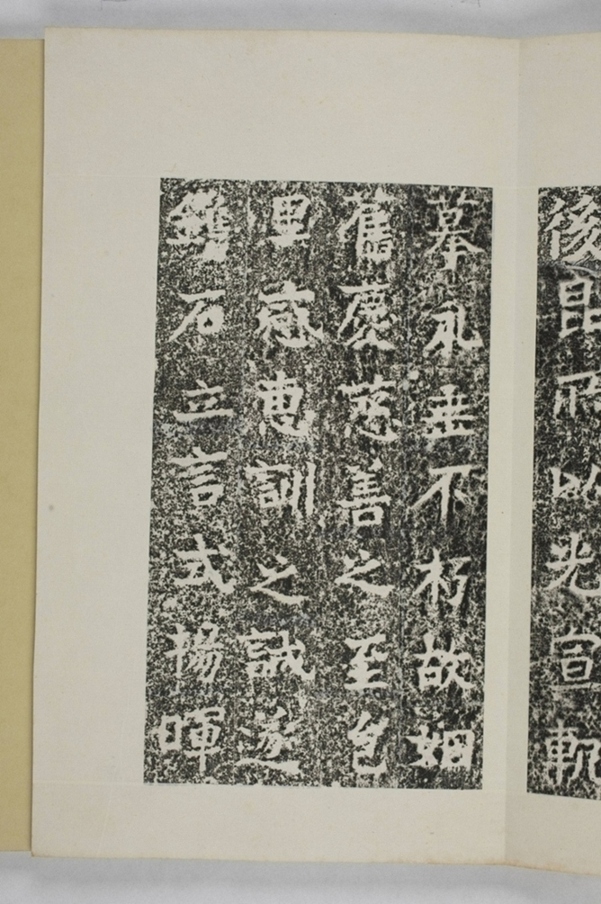 後昆所以光宣軌
摹永垂不朽故姻
舊慶慈善之至邑
里感惠訓之誠遂
鐫石立言式揚暉